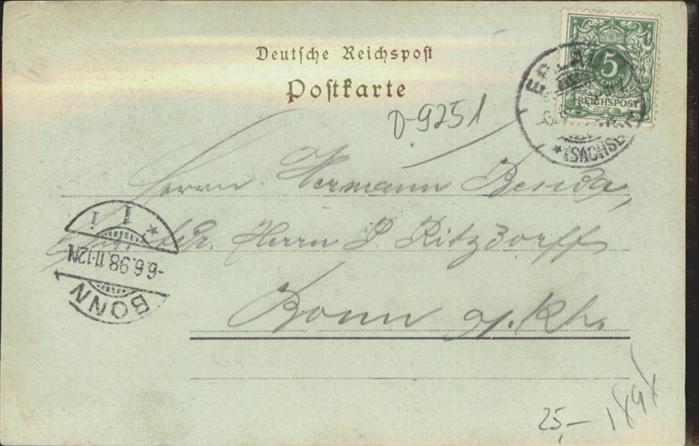 Deutsche Reichspost
Postkarte
5
REICHSPOST
(SACHSEN
D-9251
Herrn Hermann Benda,
Herrn P Ritzdorff
Bonn a/Rh.
* 1 i
-6.6.98.11-12N
BONN
25,- 1898